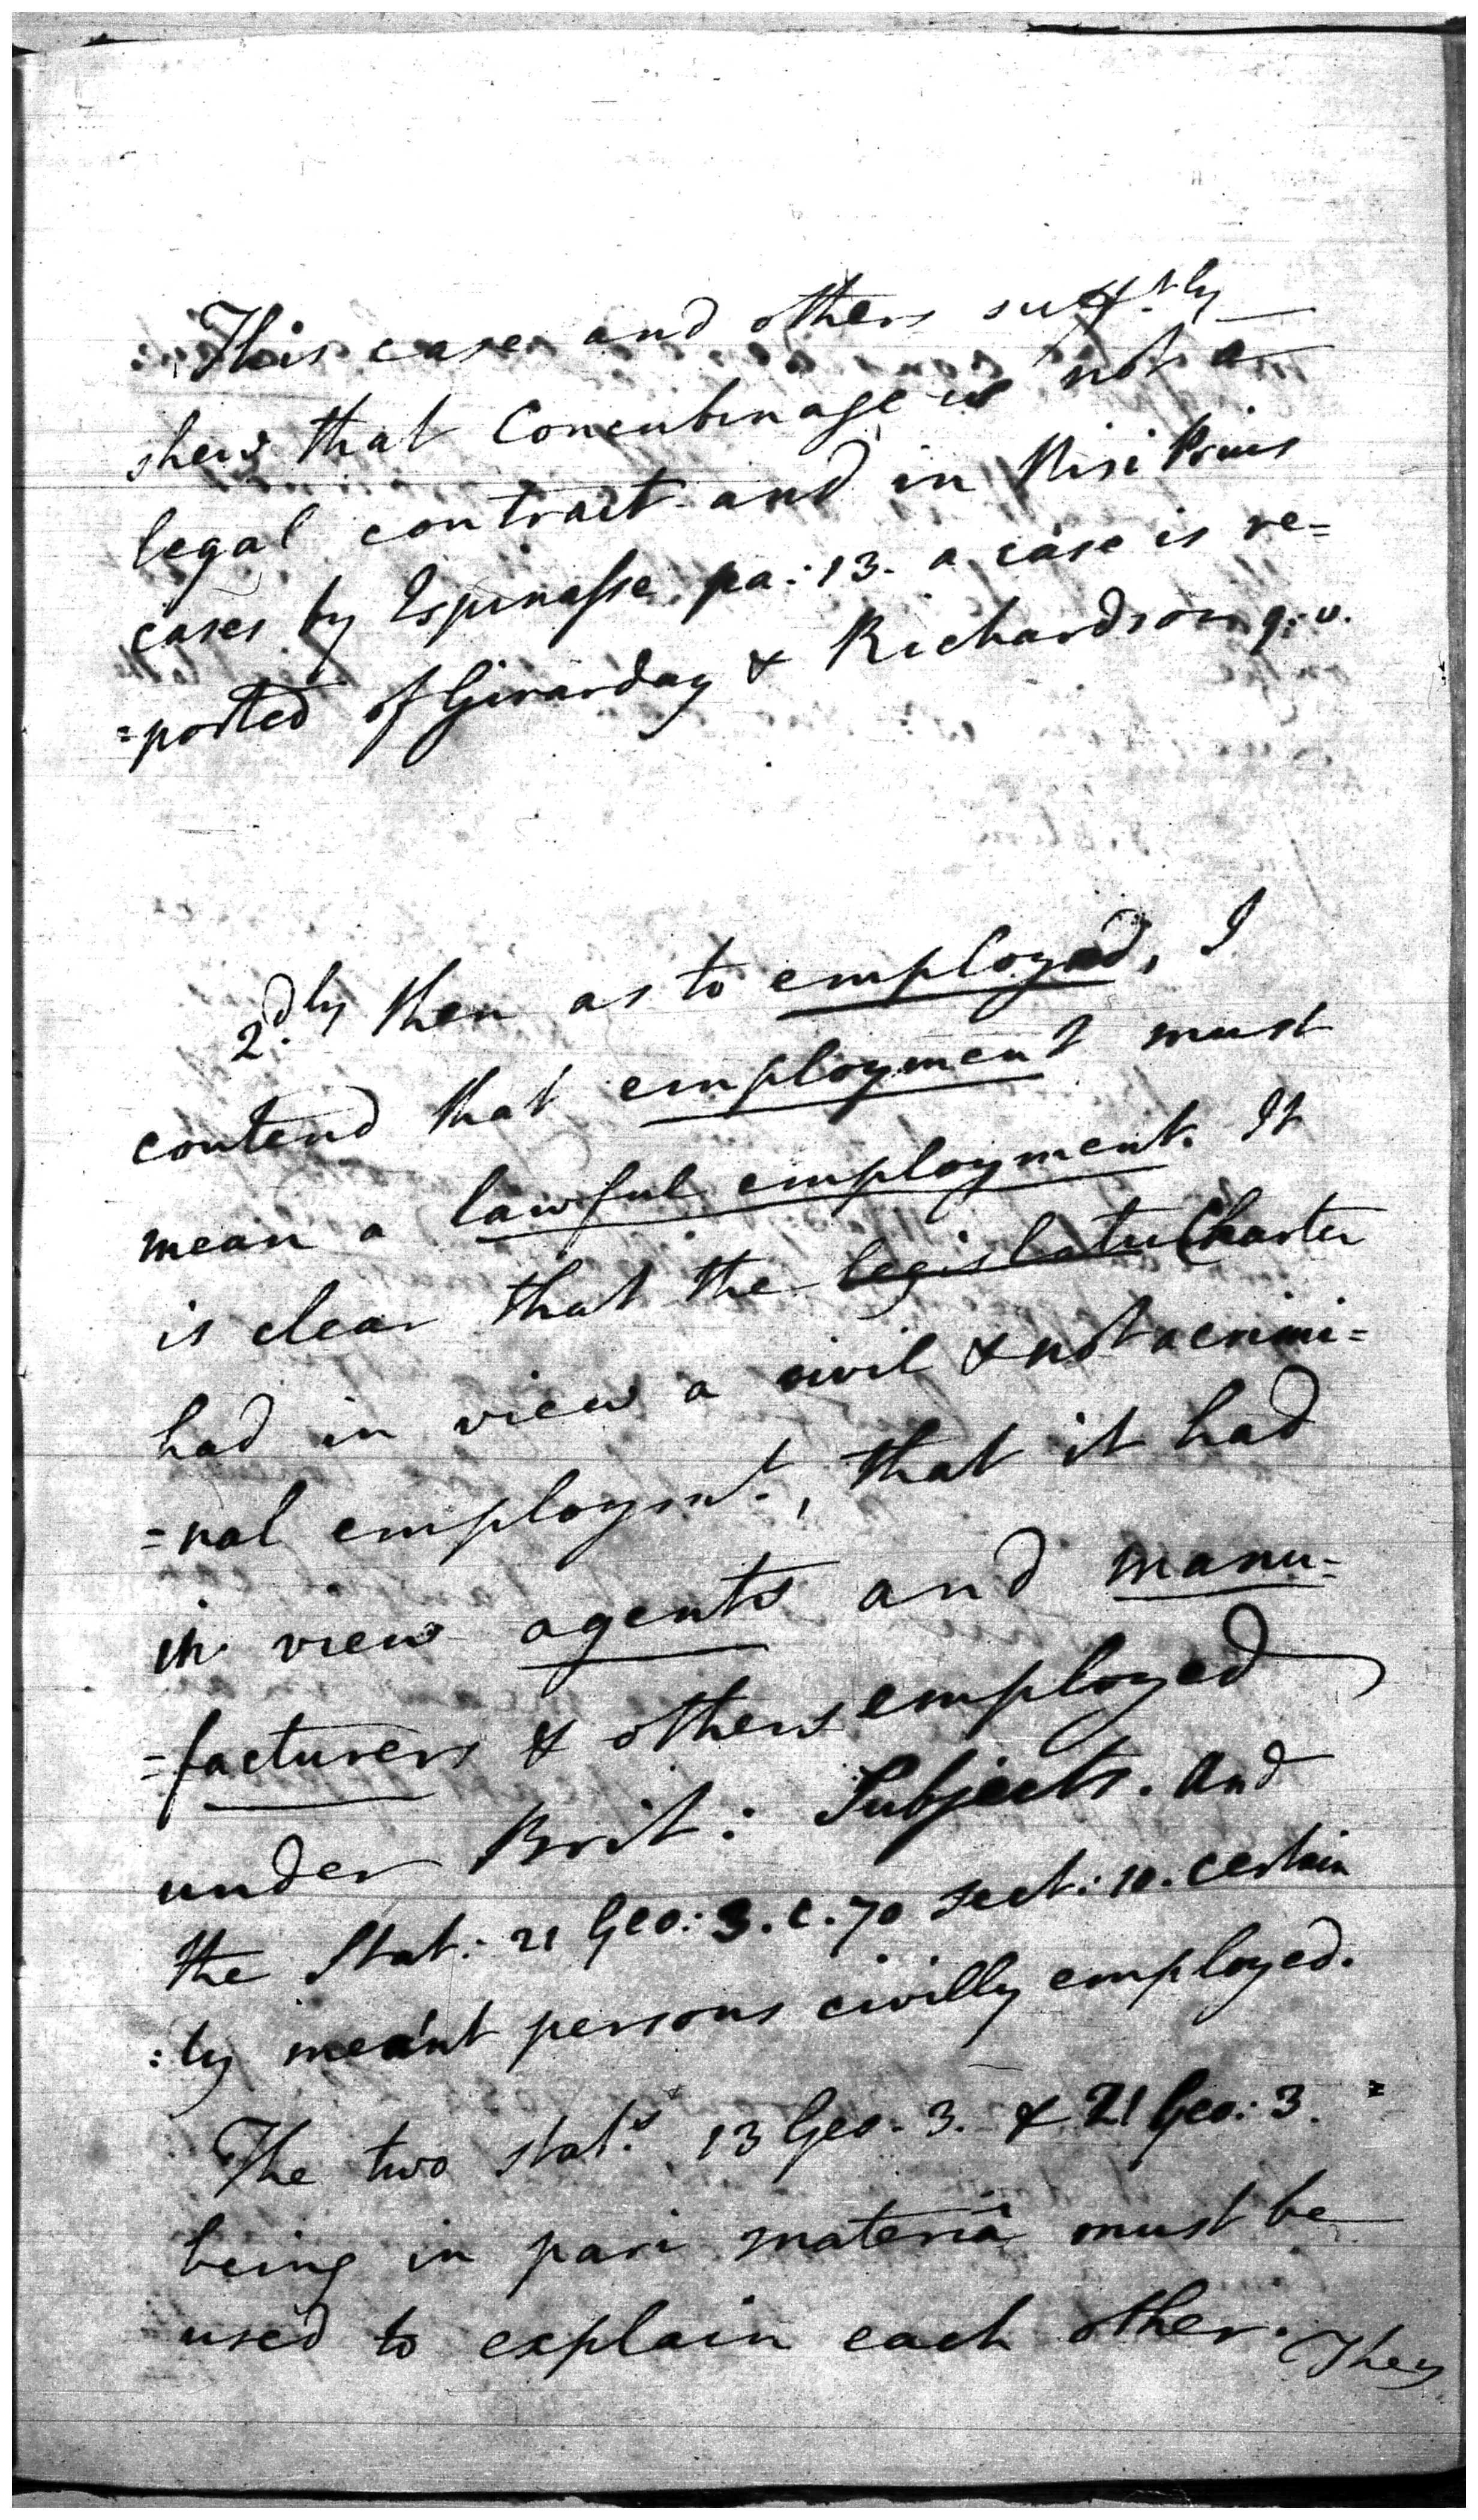 This case and others suff.tly
shew that Concubinage is not a
legal contract and in Nisi Prius
cases by Espinasse pa: 13. a case is re=
=ported of Girarday & Richardson q: v.
2.dly then as to employed, I
contend that employment must
mean a lawful employment. It
is clear that the legislatu Charter
had in view a civil & not a crimi=
=nal employm.t, that it had
in view agents and manu=
=facturers & others employed
under Brit: Subjects. And
the Stat: 21 Geo: 3. c. 70 sect: 10. certain
:ly meant persons civilly employed.
The two stat.s 13 Geo. 3. & 21 Geo: 3. =
being in pari materiâ must be
used to explain each other.
They